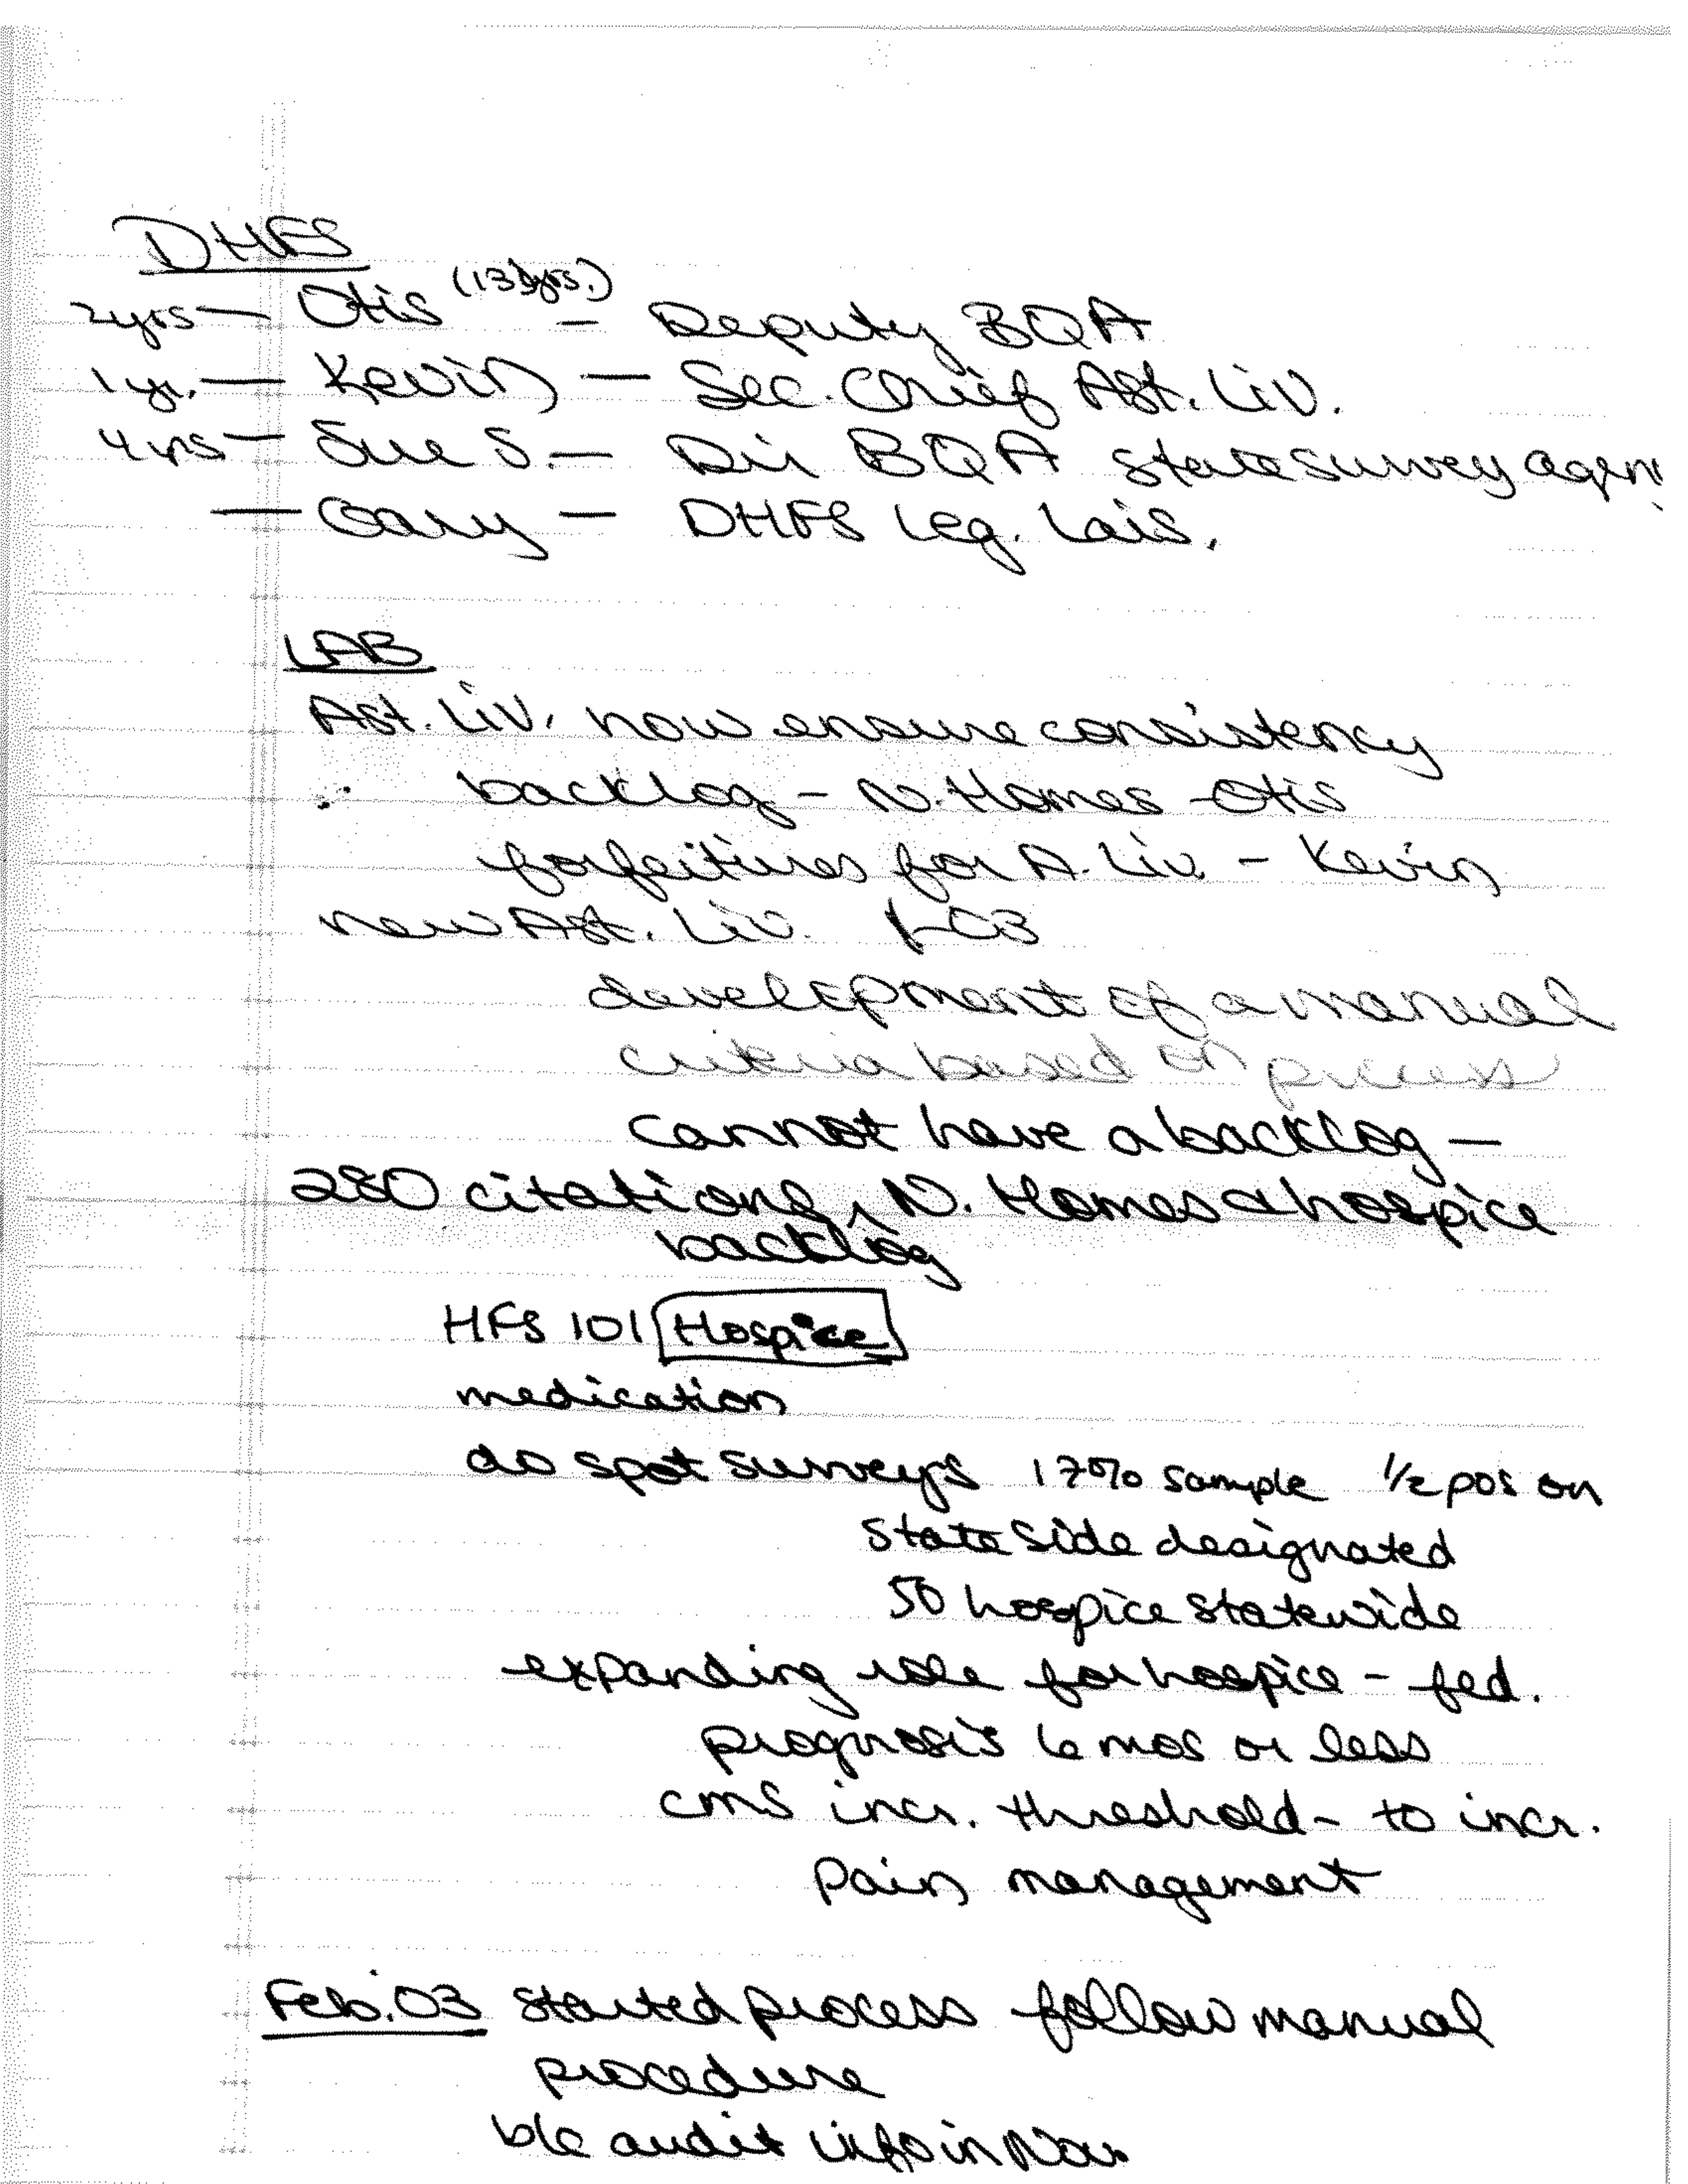 DHFS
2yrs — Otis (13 yrs.) — Deputy BQA
1 yr. — Kevin — Sec. Chief Ast. Liv.
4 yrs — Sue S. — Dir BQA state survey agen
— Gary — DHFS Leg. Lais.
LAB
Ast. Liv. now ensure consistency
backlog - N. Homes - Otis
forfeitures for A. Liv. - Kevin
new Ast. Liv. 1-03
development of a manual
criteria based on process
cannot have a backlog —
280 citations ^ N. Homes & hospice
backlog
HFS 101 Hospice
medication
do spot surveys 17% sample 1/2 pos on
State Side designated
50 hospice statewide
expanding role for hospice - fed.
prognosis 6 mos or less
CMS incr. threshold - to incr.
pain management
Feb. 03 started process follow manual
procedure
b/c audit info in Nov.